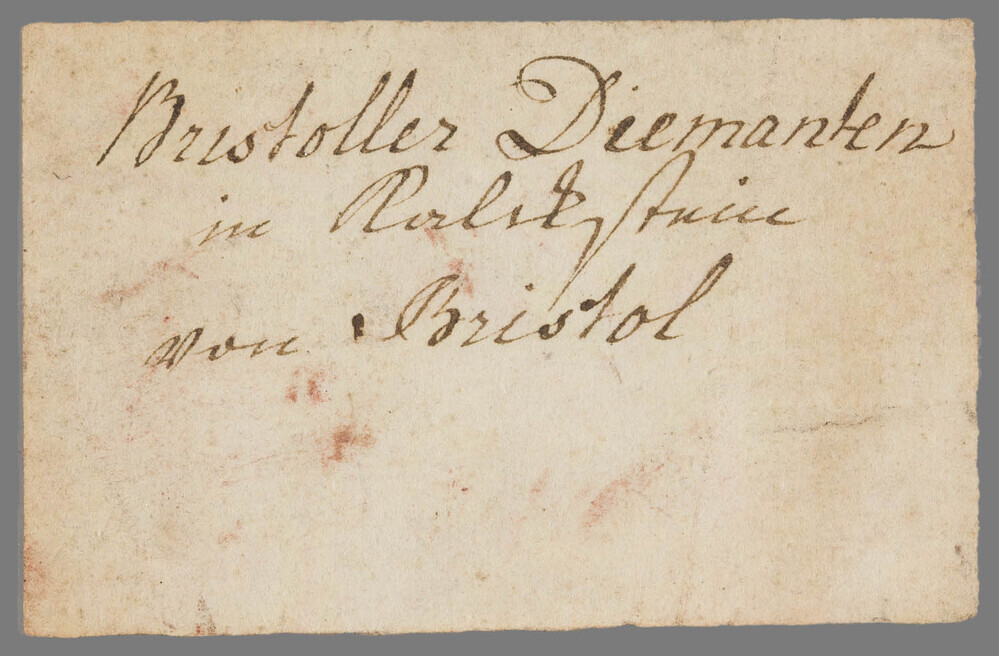 Bristoller Diemanten
in Kalkstein
von Bristol